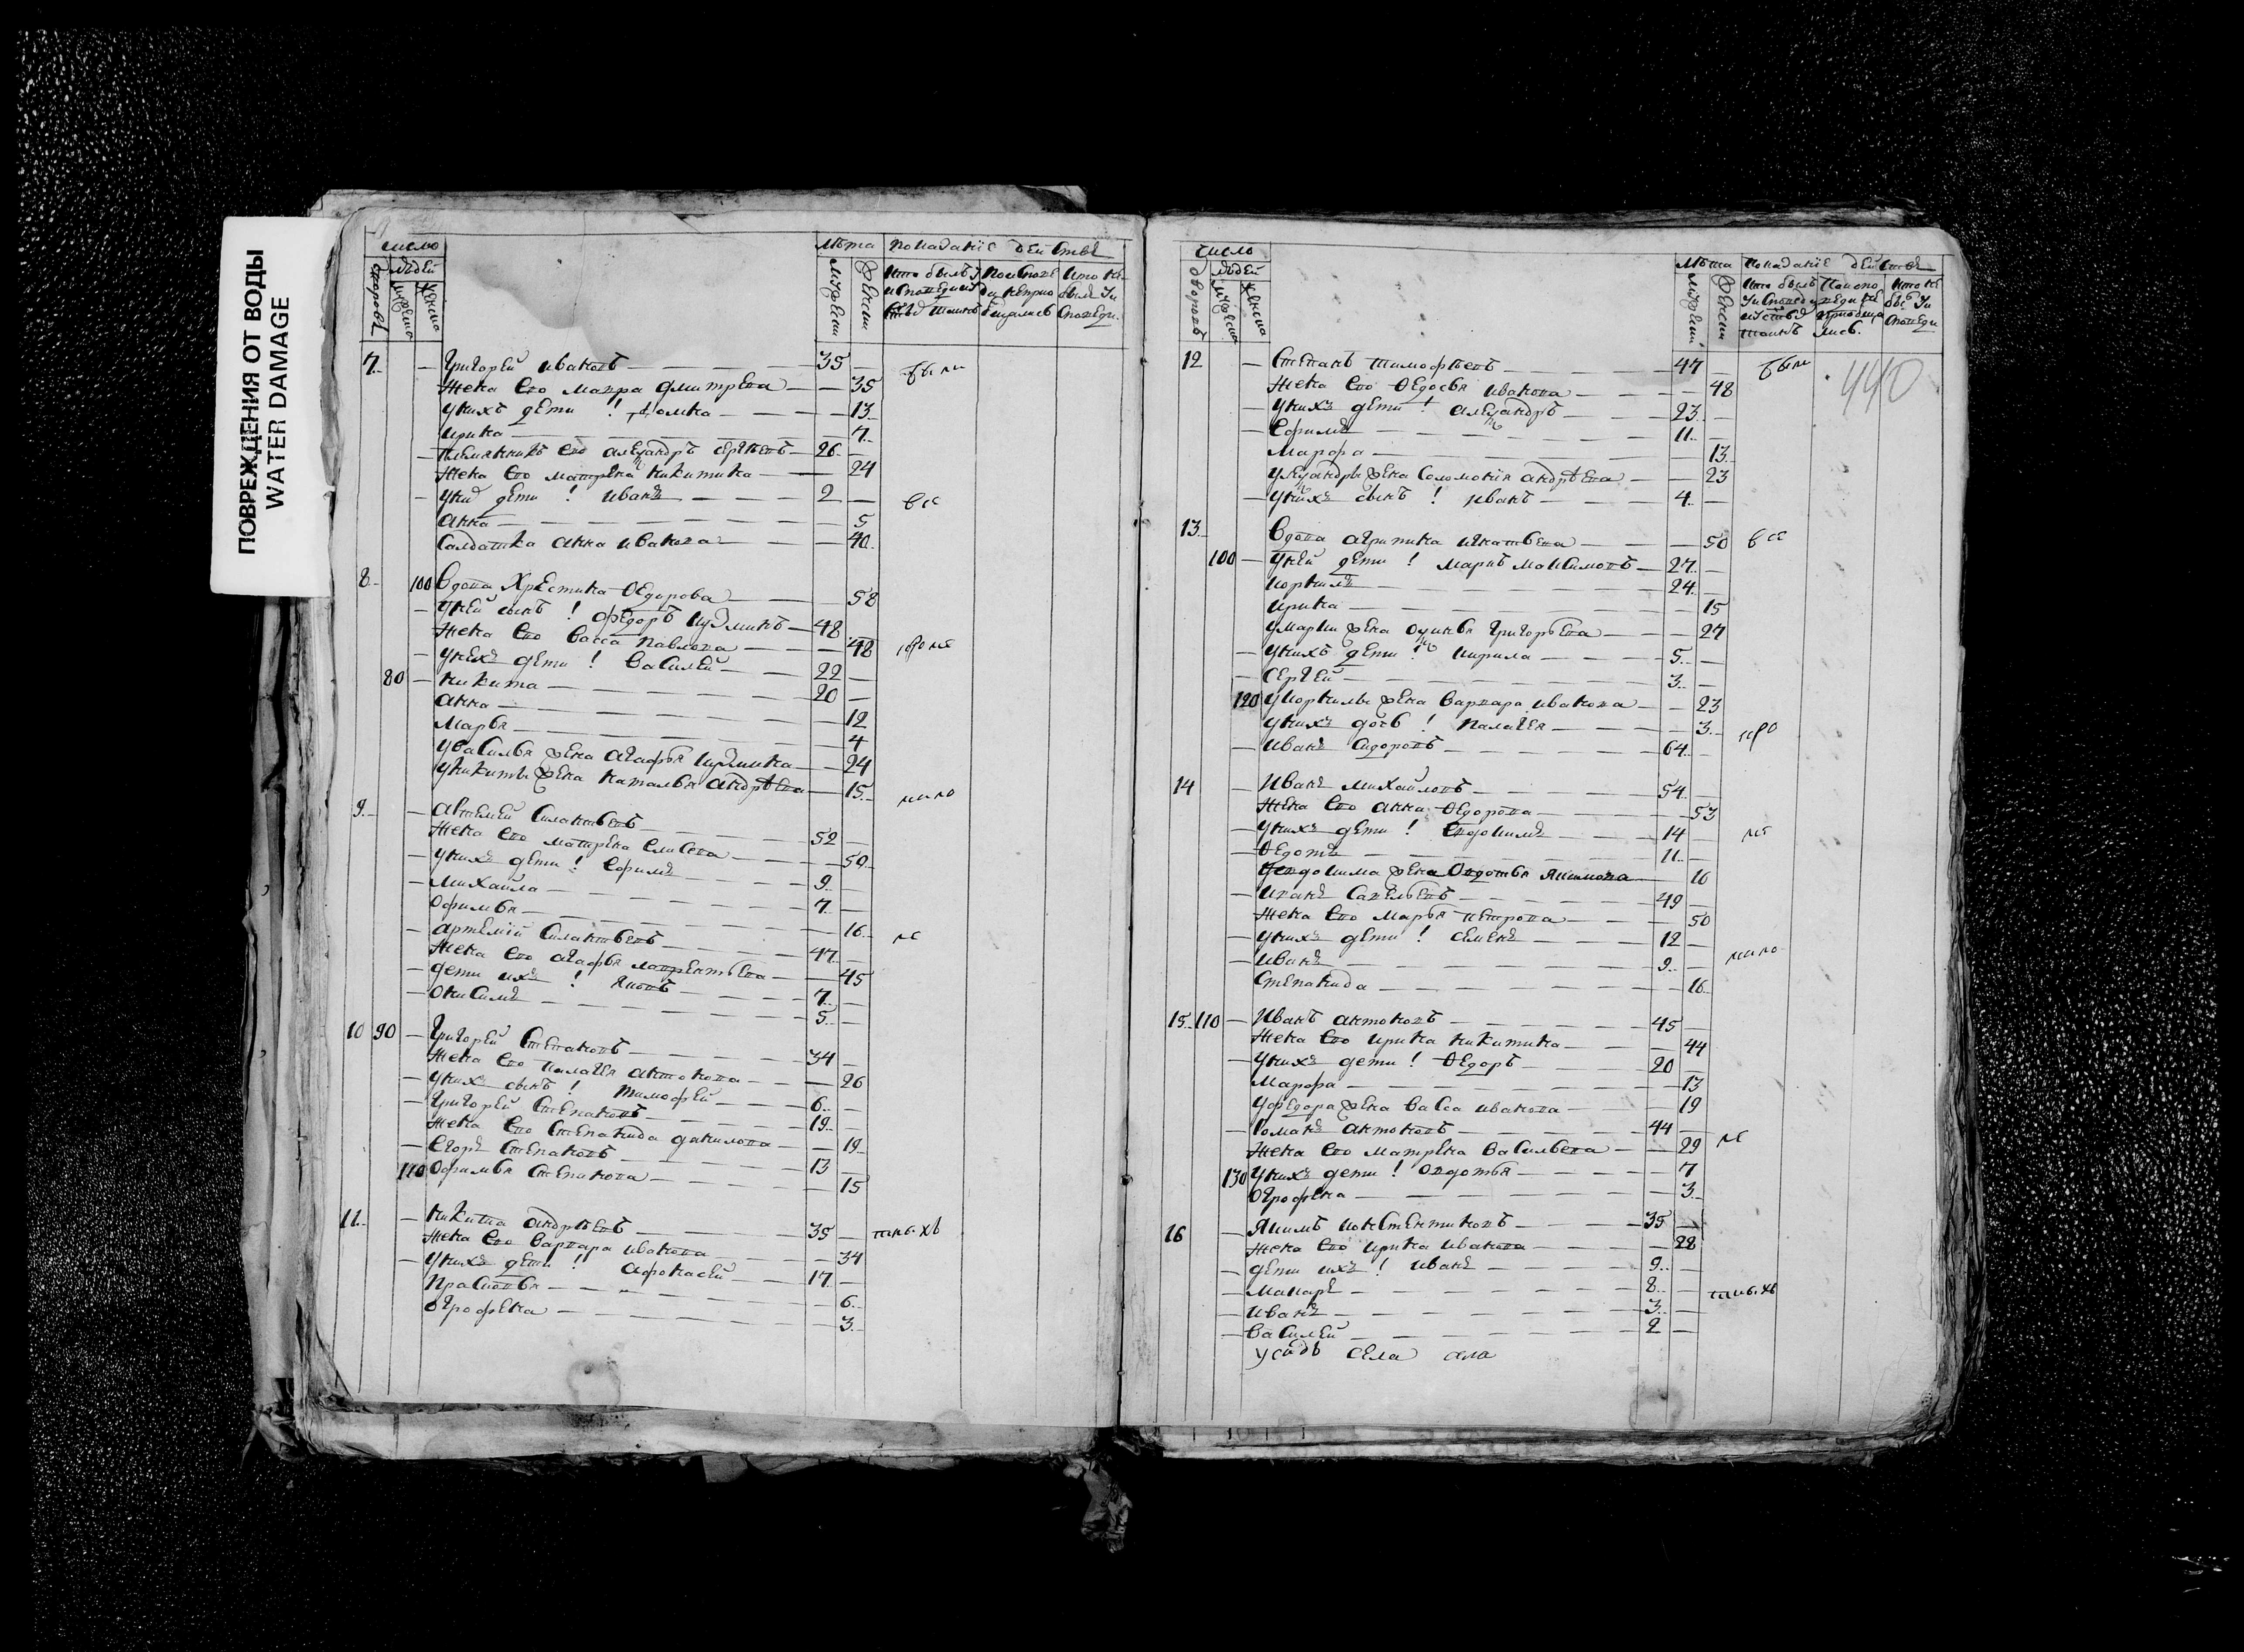 ПОВРЕЖДЕНИЯ ОТ ВОДЫ
WATER DAMAGE
число
людей
лѣта
показанїе действъ
7. Григорей Ивановъ 35 были
жена его мавра дмитрева 35
у нихъ дети ! домна 13
ирина 7
племянникъ его алеѯандръ сергѣевъ 26
жена его матрена никитина 24
у нихъ дети ! иванъ 2 все
анна 5
Салдатка анна иванова 40
8 100 вдова Христина Ѳедорова 58
у ней сынъ ! федоръ кузминъ 48
жена его васса павлова 48 кроме
у нихъ дети ! василей 22
80 никита 20
анна 12
Марья 4
у василья жена агафья кузмина 24
у никиты жена наталья андрѣева 15 мало
9 Автемей Силантьевъ 52
жена его матрена елисева 50
у нихъ дети ! ефимъ 9
михаила 7
офимья 16
артемїй Силантьевъ 47 ле
жена его агафья лаврентьева 45
дети ихъ ! яковъ 7
онисимъ 5
10 90 Григорей Степановъ 34
жена его палагея антонова 26
у нихъ сынъ ! тимофей 6
Григорей Степановъ 19
жена его степанида данилова 19
Егоръ Степановъ 13
110 офимья Степанова 15
11 никита андрѣевъ 35 тныхъ
жена его варвара иванова 34
у нихъ дети ! афонасей 17
прасковья 6
огрофена 3
число
дворовъ
людей
лѣта
показанїе действъ
440
12 Степанъ тимофѣевъ 47 были
жена его Ѳедосья иванова 48
у нихъ дети ! алеѯандръ 23
ефимъ 11
Марфа 13
у алеѯандры жена соломонїя андрѣева 23
у нихъ сынъ ! иванъ 4
13 вдова агрипина игнатьева 50 все
100 у ней дети ! маркъ максимовъ 27
корнилъ 24
ирина 15
у марки жена Григорьева 27
у нихъ дети ! кирила 5
Сергей 3
120 у корнилы жена варвара иванова 23
у нихъ дочь ! палагея 3 кро
иванъ сидоровъ 64
14 Иванъ михайловъ 54
жена его анна Ѳедорова 53
у нихъ дети ! евдокимъ 14 ме
Ѳедотъ 11
у евдокима жена овдотья якимова 16
иванъ савельевъ 49
жена его Марья петрова 50
у нихъ дети ! семенъ 12
иванъ 9 мало
Степанида 16
15 110 Иванъ антоновъ 45
жена его ирина никитина 44
у нихъ дети ! Ѳедоръ 20
Марфа 13
у федора жена васса иванова 19
романъ антоновъ 44 ле
жена его матрена васильева 29
130 у нихъ дети ! овдотья 7
огрофена 3
16 Якимъ констентиновъ 35
жена его ирина иванова 28
дети ихъ ! иванъ 9
макаръ 8 тныхъ
иванъ 3
василей 2
села